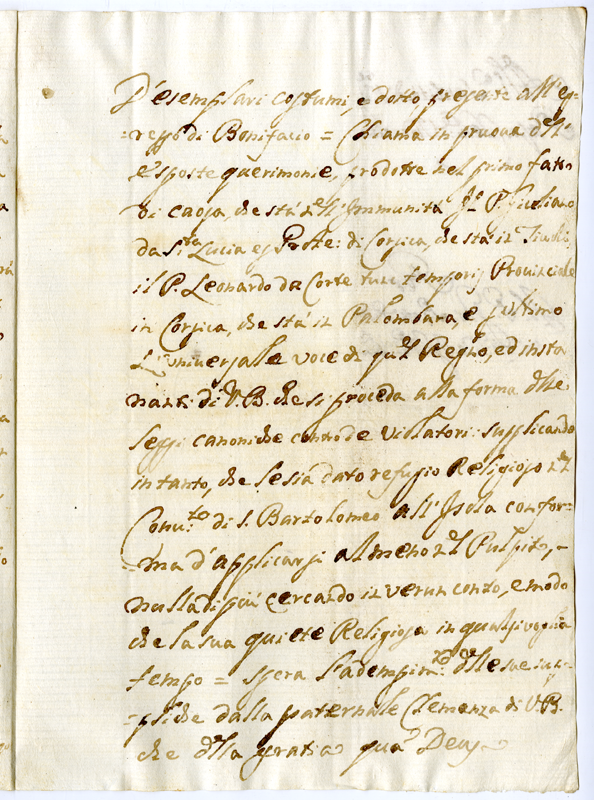 D'esemplari costumi, e dotto presente all'eg-
-resso di Bonifacio = Chiama in pruova dell'
esposte querimonie, prodotte nel primo fatto
di caosa, che stà nell'Immunità P. Giuliano
da S.ta Lucia ex Prole: di Corsica, che stà in Tivoli,
il P. Leonardo da Corte tunc temporis Provinciale
in Corsica, che stà in Palombara, e ultimo
L'universale voce di Regno, ed insta
nanti di V.B. che si proceda alla forma delle
leggi canoniche contro de violatori: supplicando
in tanto, che le sia dato refugio Religioso nel
Conv.to di S. Bartolomeo all'Isola con for-
-ma d'applicarsi almeno nel Pulpito, -
nulla di più cercando in verun conto, e modo
che la sua quiete Religiosa in qualsivoglia
tempo = spera l'adempim.to delle sue sup-
-pliche dalla paternale Clemenza di V.B.
che della gratia qua Deus